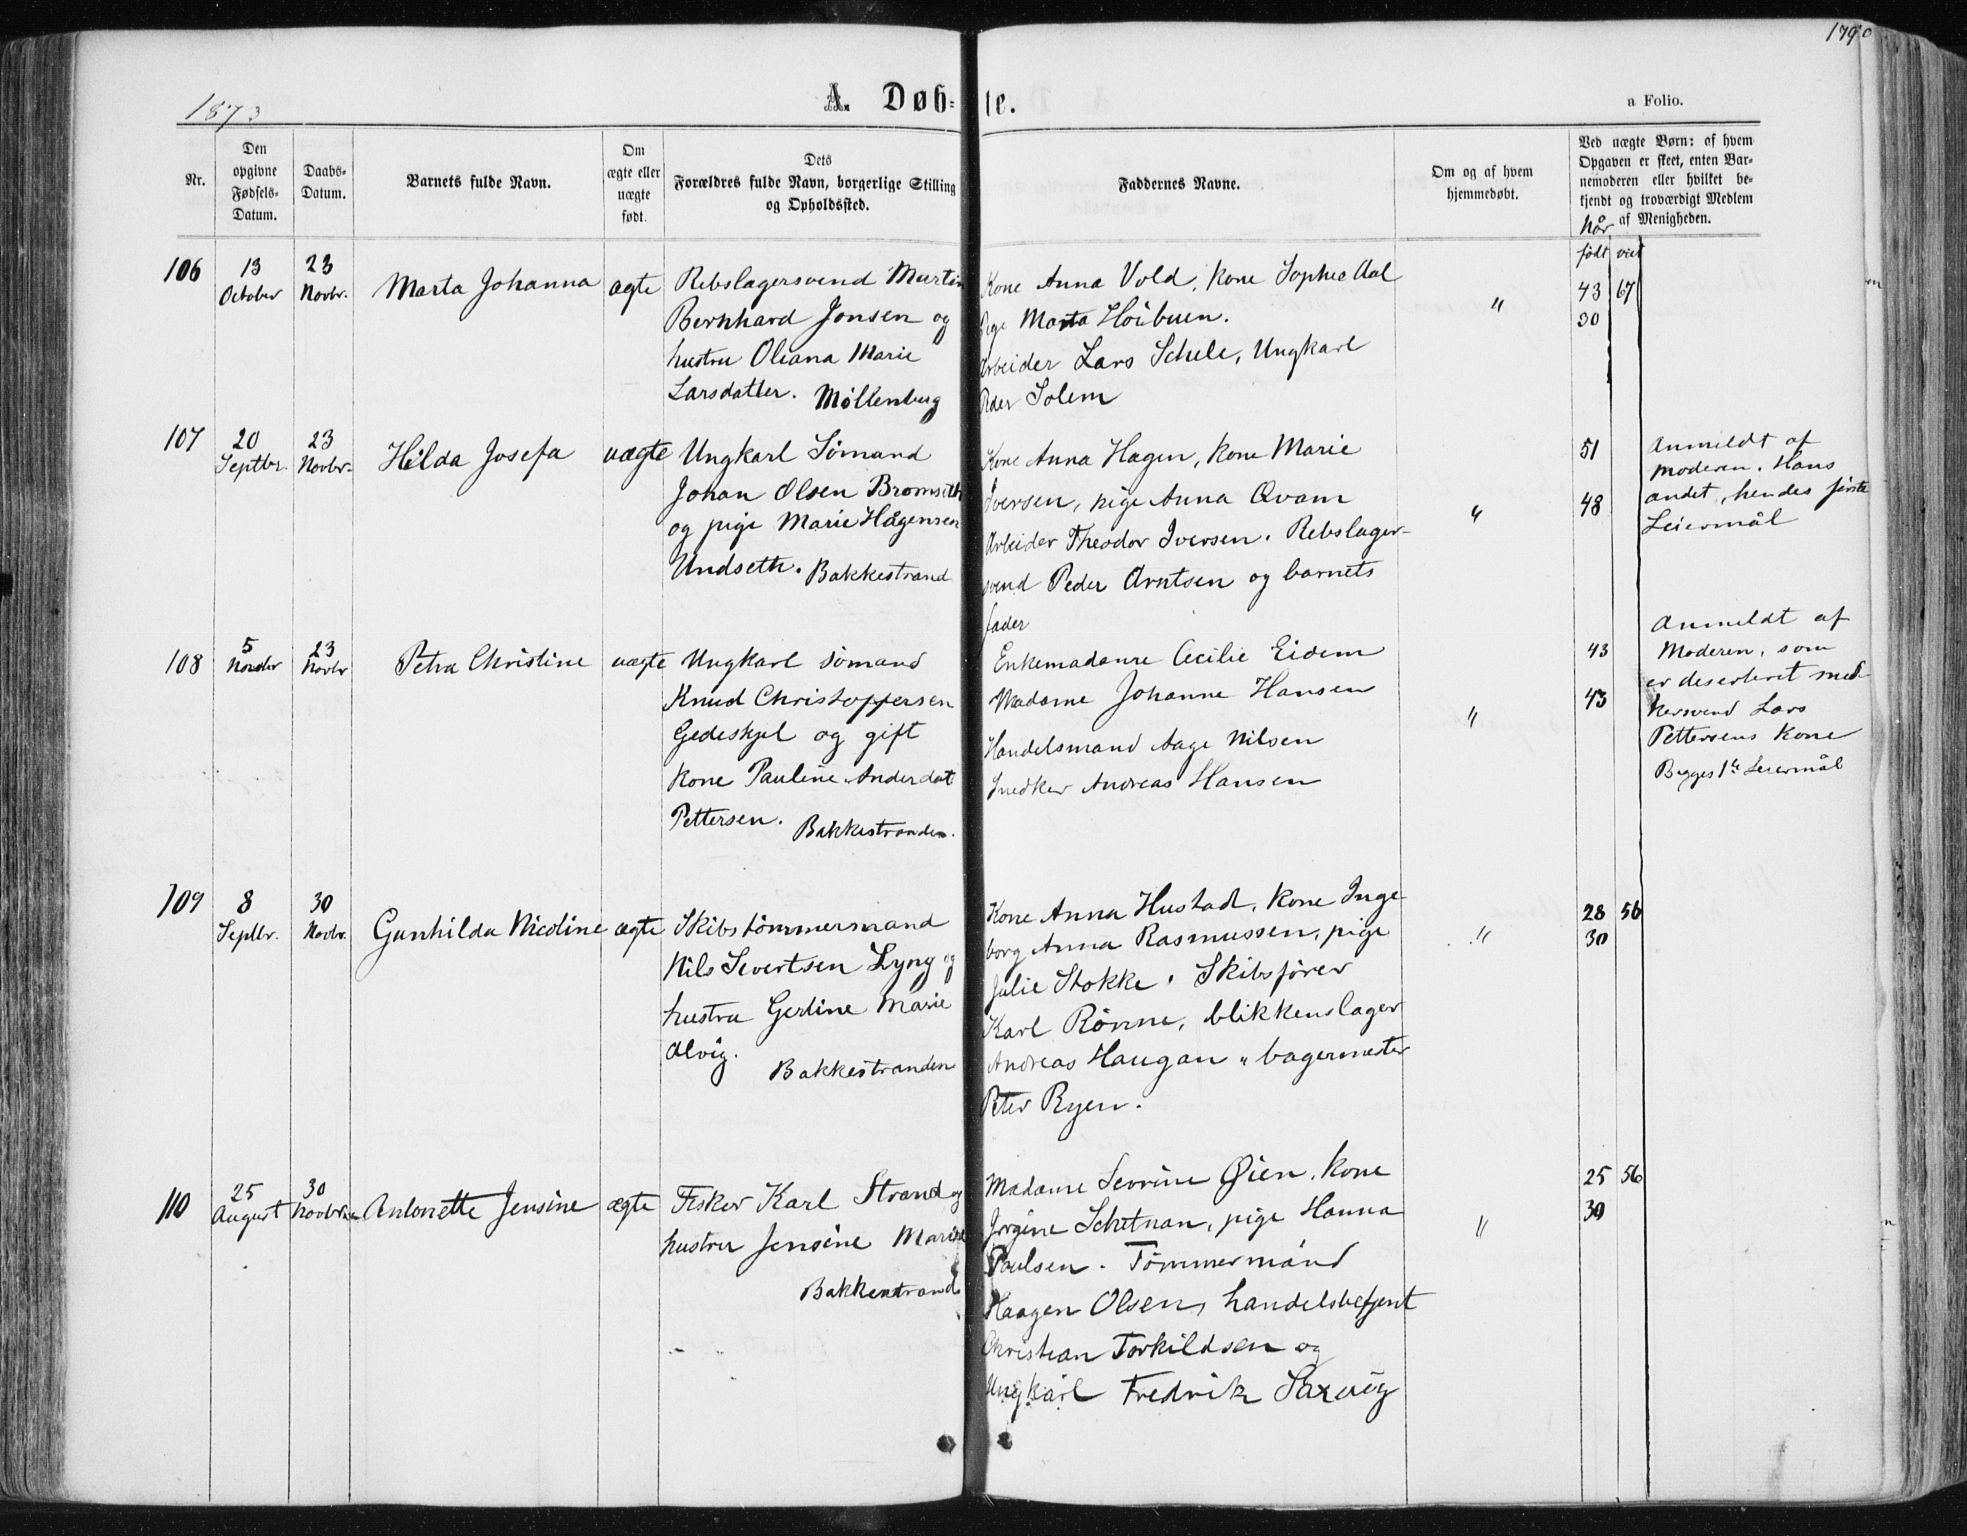 1873
A. Døb-
te.
a Folio.
179
Nr.
Den
opgivne
Fødsels-
Datum.
Daabs-
Datum.
Barnets fulde Navn.
Om
ægte eller
uægte
født.
Dets
Forældres fulde Navn, borgerlige Stilling
og Opholdssted.
Faddernes Navne.
Om og af hvem
hjemmedøbt.
Ved uægte Børn: af hvem
Opgaven er skeet, enten Bar-
nemoderen eller hvilket be-
kjendt og troværdigt Medlem
af Menigheden.
når
født viet
106
13
October
23
Novbr.
Marta Johanna
ægte
Rebslagersvend Martin
Bernhard Jonsen og
hustru Oliana Marie
Larsdatter. Møllenberg
Kone Anna Vold, kone Sophie Aal
Pige Marta Höibuen.
Arbeider Lars Schele, Ungkarl
Peder Solem
"
43 67
30
107
20
Septbr.
23
Novbr.
Hilda Josefa
uægte
Ungkarl Sömand
Johan Olsen Bromseth
og pige Marie Hågensen
Undseth. Bakkestrand
Kone Anna Hagen, kone Marie
Iversen, pige Anna Qvam
Arbeider Theodor Iversen. Rebslager-
svend Peder Arntsen og barnets
fader
"
51
48
Anmeldt af
Moderen. Hans
andet, hendes första
Leiermål
108
5
Novbr
23
Novbr
Petra Christine
uægte
Ungkarl sömand
Knud Christoffersen
Gedeskjel og gift
kone Pauline Andersdat
Pettersen. Bakkestranden.
Enkemadame Cecilie Eidem
Madame Johanne Hansen
Handelsmand Aage Nilsen
Snedker Andreas Hansen
"
43
43
Anmeldt af
Moderen, som
er deserteret sned-
kersvend Lars
Pettersens Kone
Begges 1ste Leiermål
109
8
Septbr.
30
Novbr.
Gunhilda Nicoline
ægte
Skibstömmermand
Nils Severtsen Lyng og
hustru Gerline Marie
Alvig.
Bakkestranden
Kone Anna Hustad, kone Inge
borg Anna Rasmussen, pige
Julie Stokke. Skibsförer
Karl Rönne, blikkenslager
Andreas Haugan " bagermester
Peter Ryen.
"
28 56
30
110
25
August
30
Novbr.
Antonette Jensine
ægte
Fisker Karl Strand og
hustru Jensine Marie
Bakkestrand
Madame Sevrine Øien, kone
Jörgine Schetnan, pige Hanna
Paulsen. Tömmermand
Haagen Olsen, handelsbetjent
Christian Torkildsen og
Ungkarl Fredrik Saxvig
"
25 56
30